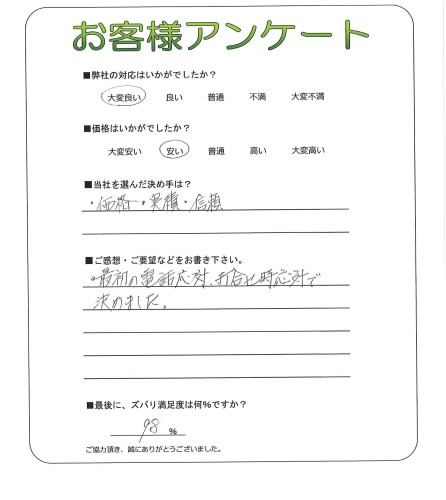 お客様アンケート
■弊社の対応はいかがでしたか？
大変良い 良い 普通 不満 大変不満
■価格はいかがでしたか？
大変安い 安い 普通 高い 大変高い
■当社を選んだ決め手は？
・価格・実績・信頼
■ご感想・ご要望などをお書き下さい。
・最初の電話応対、打合せ時応対で
決めました。
■最後に、ズバリ満足度は何%ですか？
98 %
ご協力頂き、誠にありがとうございました。